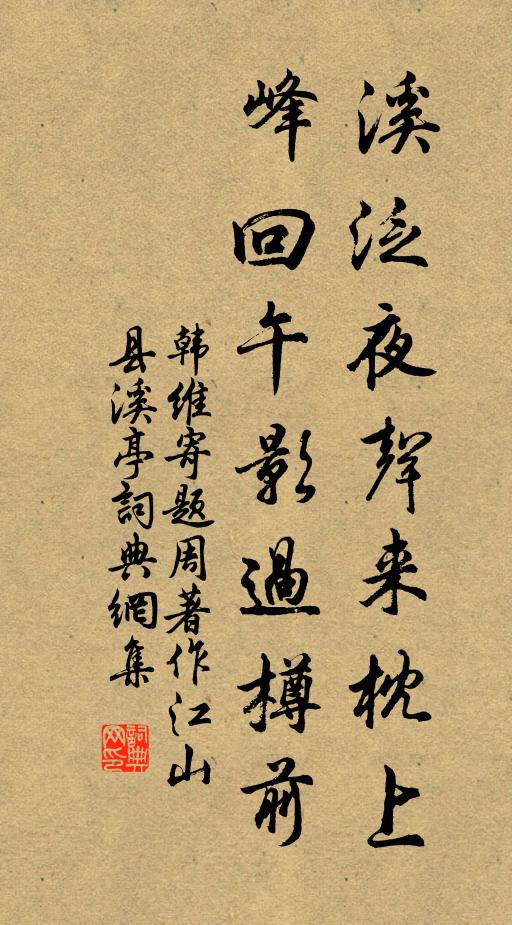 溪泛夜聲来枕上
峰回午影過樽前
韩維寄题周著作江山
县溪亭詞典網集
詞典
网印